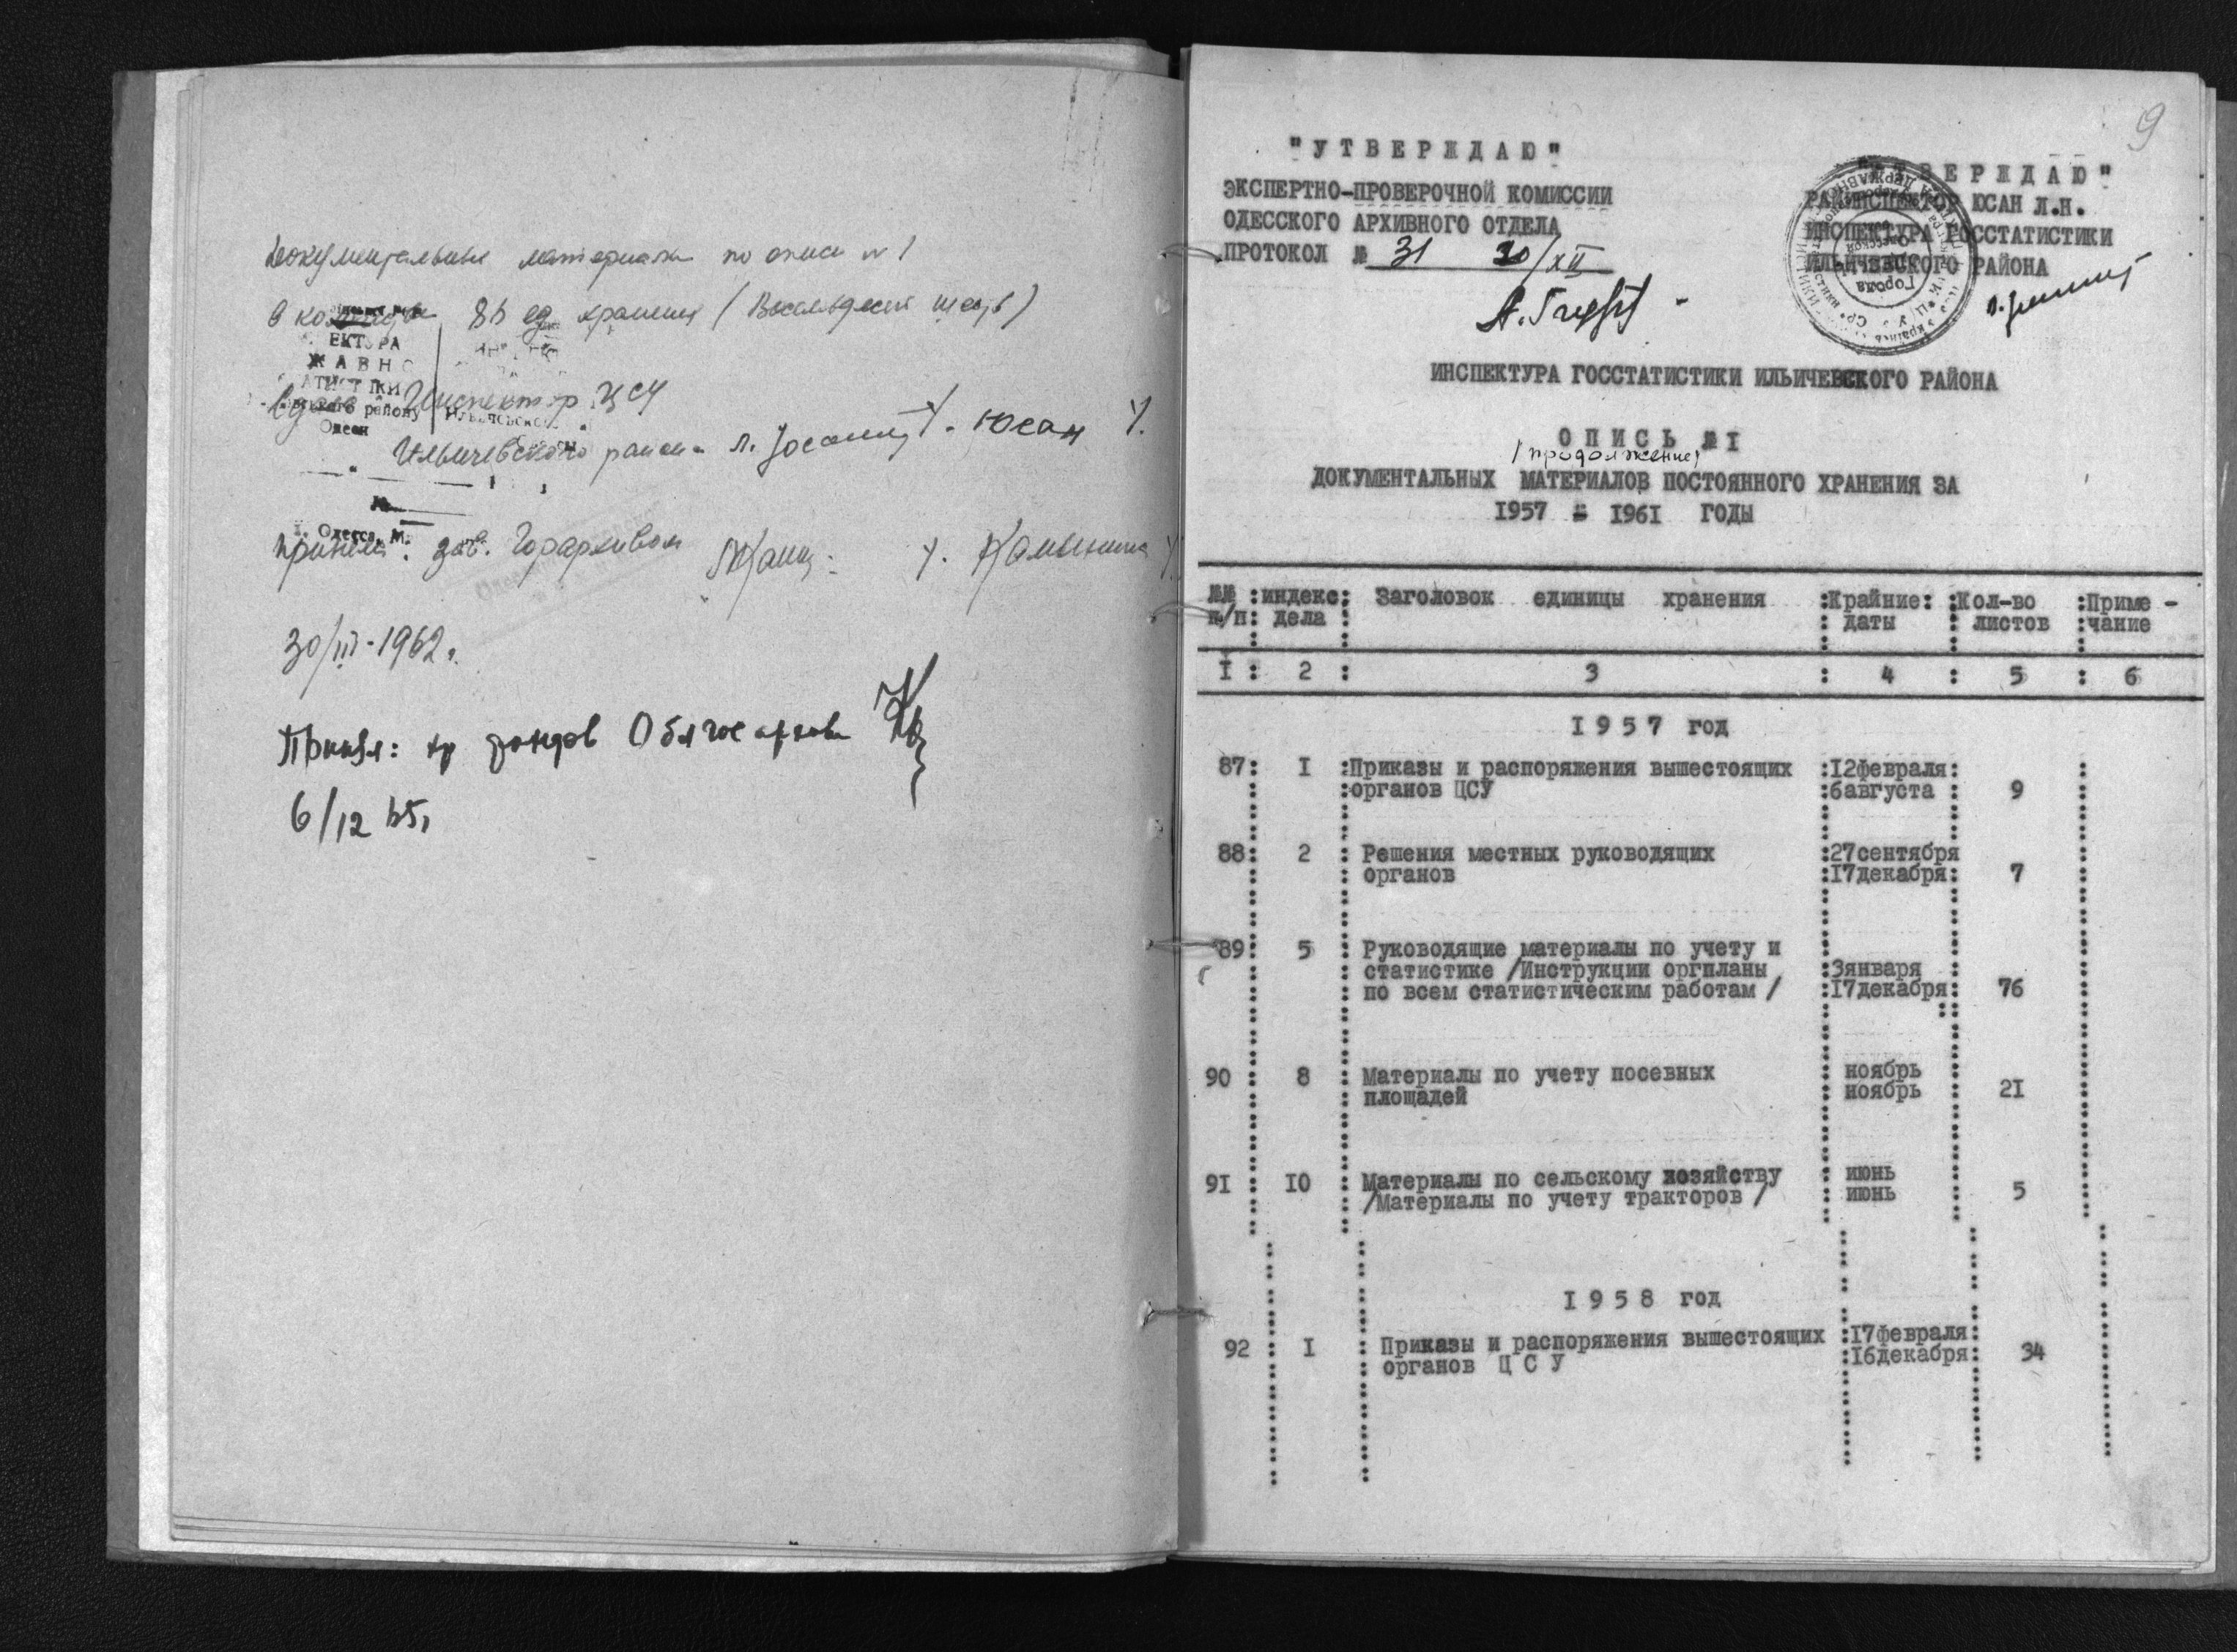 Документальные материалы по описи № 1
в 86 ед хранения (Восемьдесят шесть)
ЕКТУРА
ЖАВНО
АТИСТИКИ
Инспектор ЦСУ
району
Одеса
Ильичевского района /. Юсан /.
№
Одесса, М.
принял: зав. Горархивом /. Камынина /
30/III-1962г.
Принял: хр фондов Облгосархива
6/12 65г
9
"УТВЕРЖДАЮ"
ЭКСПЕРТНО-ПРОВЕРОЧНОЙ КОМИССИИ
ОДЕССКОГО АРХИВНОГО ОТДЕЛА
ПРОТОКОЛ № 31 30/XII
"УТВЕРЖДАЮ"
РАЙИНСПЕКТОР ЮСАН Л.Н.
ИНСПЕКТУРА ГОССТАТИСТИКИ
ИЛЬИЧЕВСКОГО РАЙОНА
ИНСПЕКТУРА ГОССТАТИСТИКИ ИЛЬИЧЕВСКОГО РАЙОНА
ОПИСЬ №I
/продолжение/
ДОКУМЕНТАЛЬНЫХ МАТЕРИАЛОВ ПОСТОЯННОГО ХРАНЕНИЯ ЗА
1957 - 1961 ГОДЫ
№№ :индекс: Заголовок единицы хранения :Крайние: :Кол-во :Приме -
п/п: дела : : даты : листов :чание
I : 2 : 3 : 4 : 5 : 6
1957 год
87: I :Приказы и распоряжения вышестоящих :12февраля:
:органов ЦСУ :6августа : 9
88: 2 : Решения местных руководящих :27сентября
: органов :17декабря: 7
89: 5 : Руководящие материалы по учету и
: статистике /Инструкции оргпланы :3января
: по всем статистическим работам / :17декабря: 76
90 : 8 : Материалы по учету посевных : ноябрь
: площадей : ноябрь : 21
91 : 10 : Материалы по сельскому хозяйству : июнь
: /Материалы по учету тракторов / : июнь : 5
1958 год
92 : I : Приказы и распоряжения вышестоящих :17февраля:
: органов Ц С У :16декабря: 34